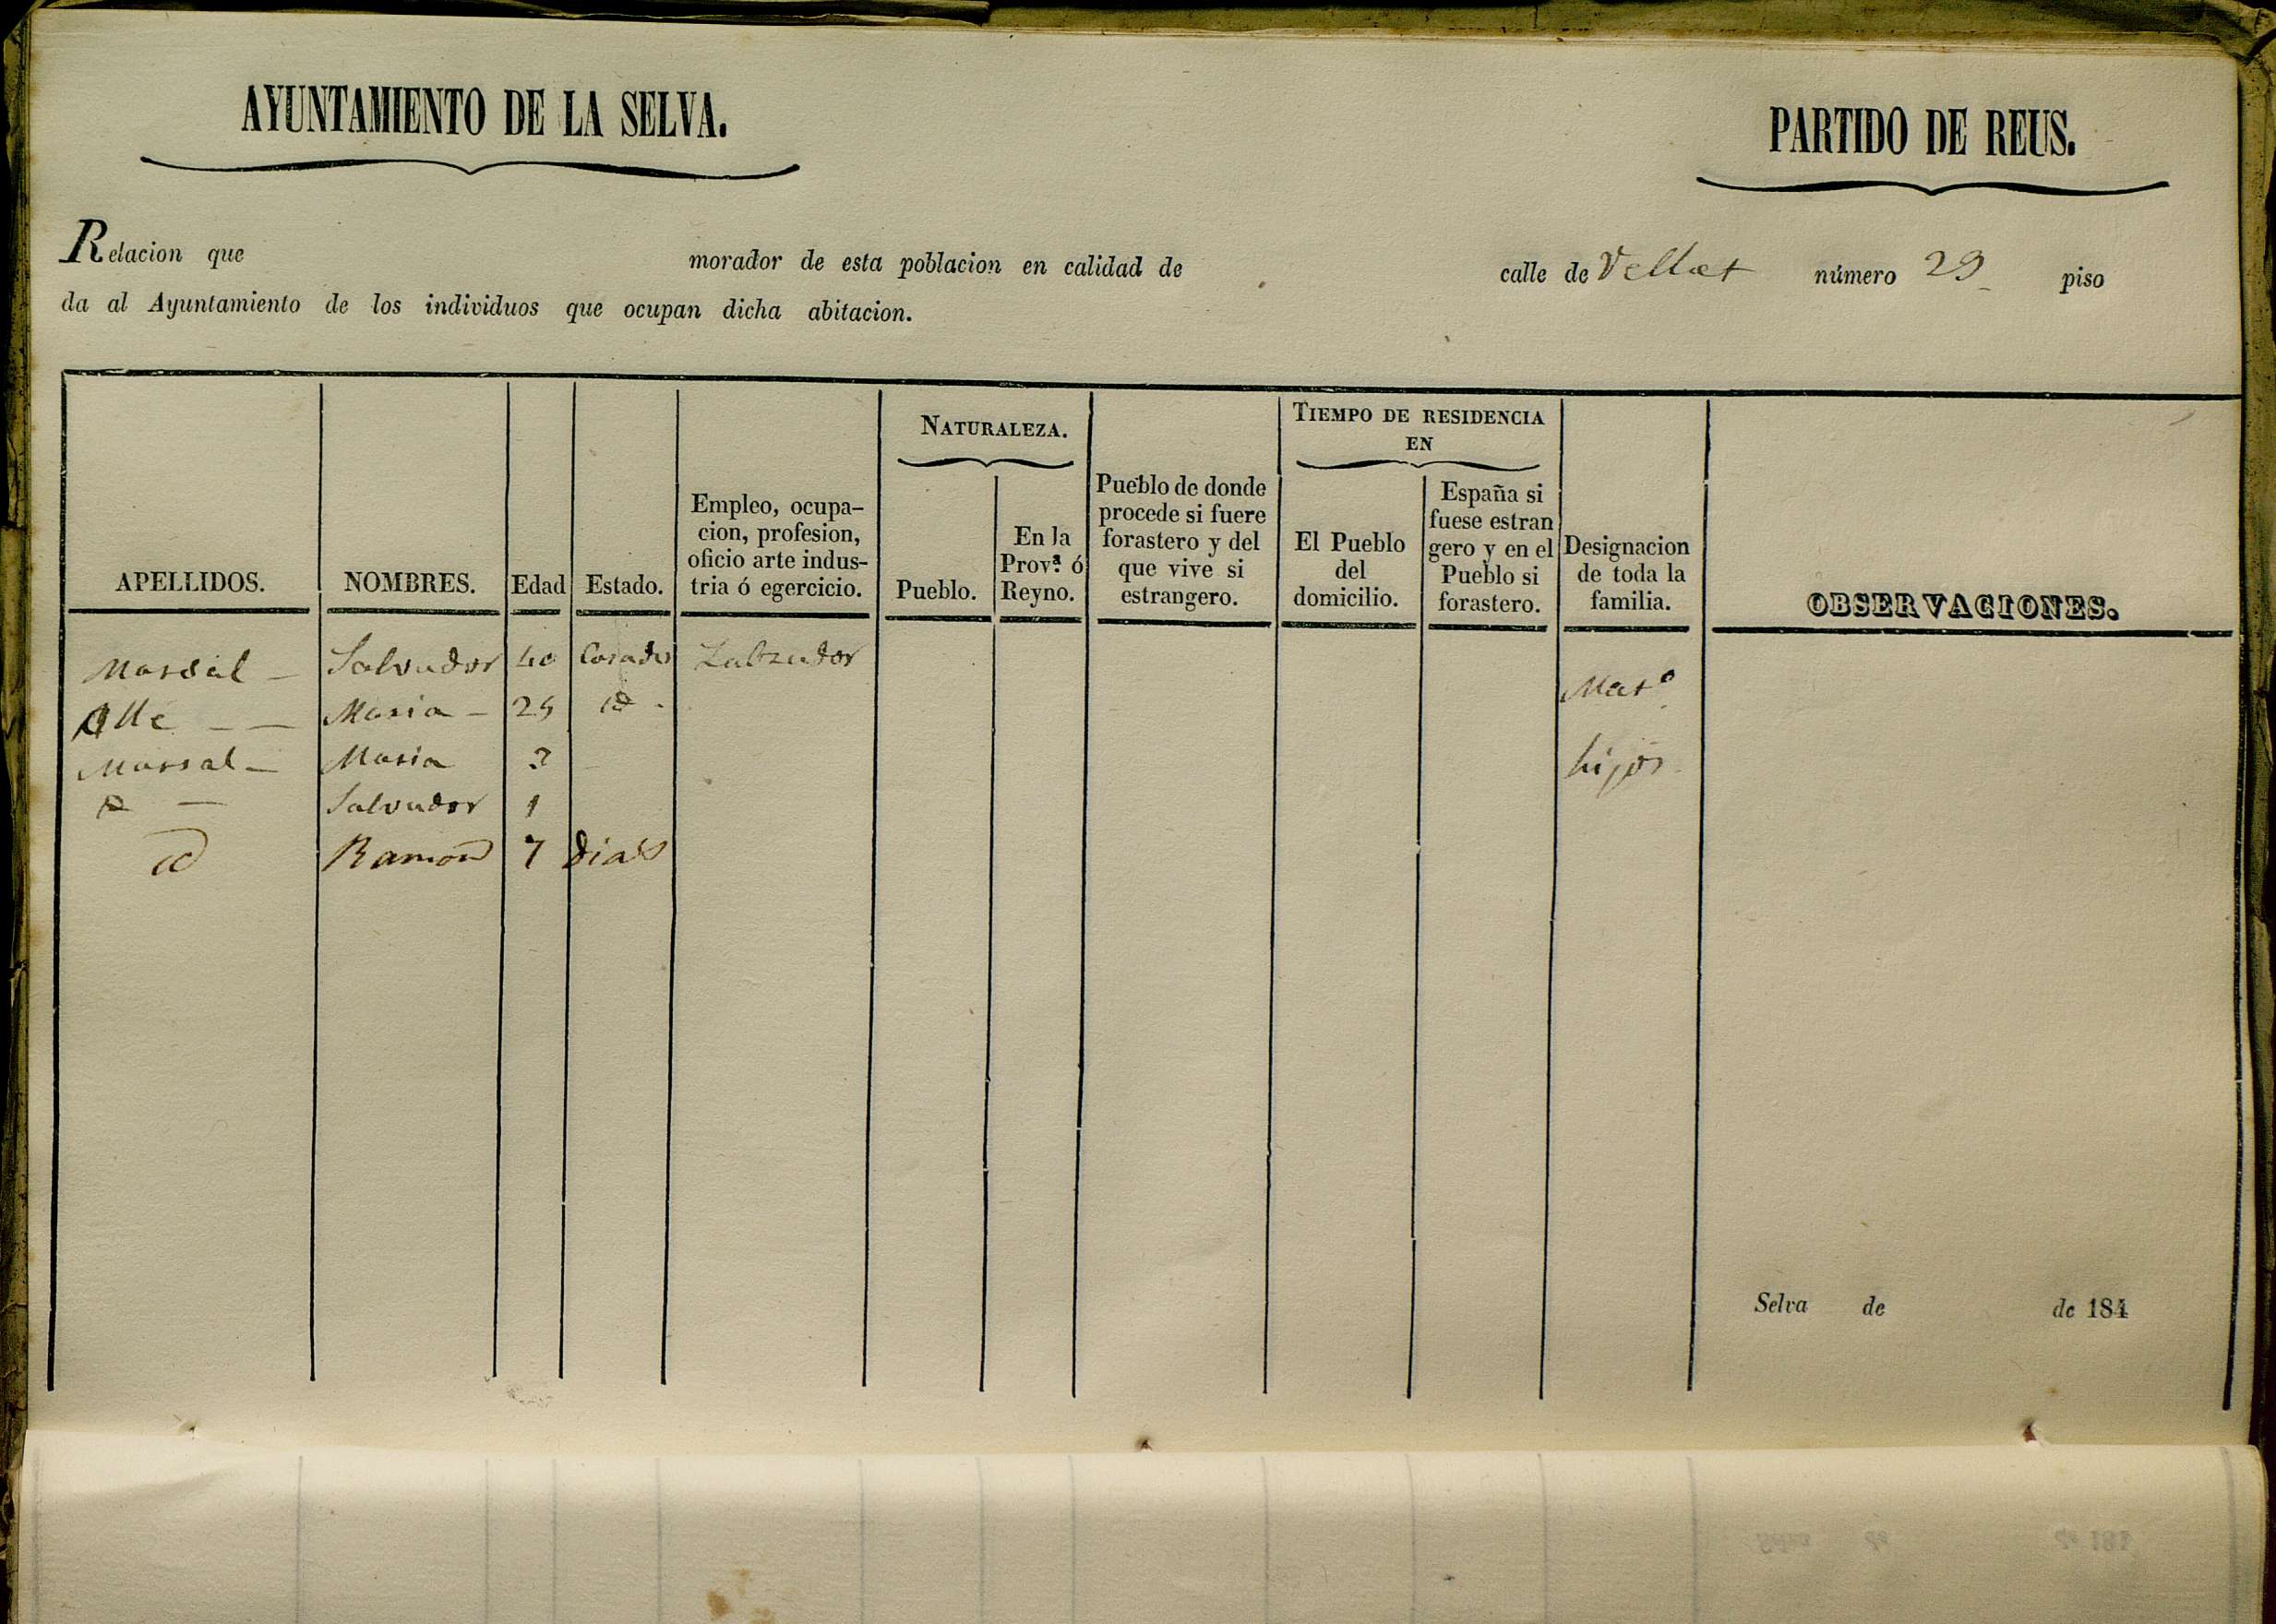 AYUNTAMIENTO DE LA SELVA.
PARTIDO DE REUS.
Relacion que morador de esta poblacion en calidad de calle de Vellat número 29 piso
da al Ayuntamiento de los individuos que ocupan dicha abitacion.
APELLIDOS.
NOMBRES.
Edad
Estado.
Empleo, ocupa-
cion, profesion,
oficio arte indus-
tria ó egercicio.
NATURALEZA.
Pueblo.
En la
Prov.ª ó
Reyno.
Pueblo de donde
procede si fuere
forastero y del
que vive si
estrangero.
TIEMPO DE RESIDENCIA
EN
El Pueblo
del
domicilio.
España si
fuese estran
gero y en el
Pueblo si
forastero.
Designacion
de toda la
familia.
OBSERVACIONES.
Marsal Salvador 40 Casados Labrador
Maria 25 id Mat.º
Marsal Maria 3 hijos
id Salvador 1
id Ramon 7 dias
Selva de de 184